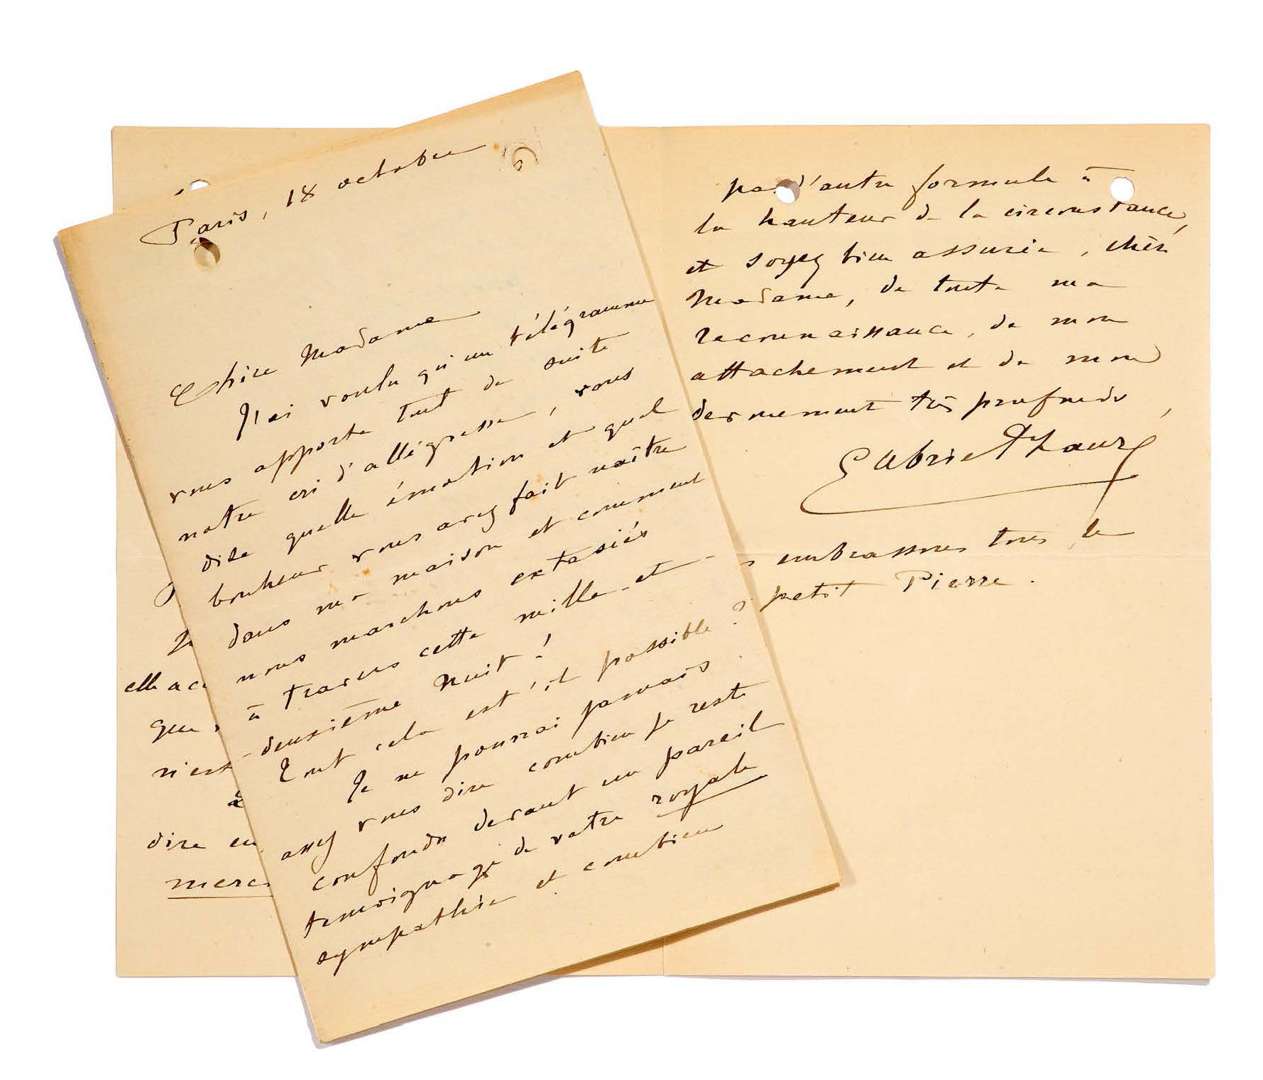 Paris, 18 octobre
Chère Madame
J'ai voulu qu'un télégramme
vous apporte tout de suite
notre cri d'allégresse, vous
dire quelle émotion et quel
bonheur vous avez fait naître
dans ma maison et comment
nous marchons extasiés
à travers cette mille-et-
deuxième Nuit!
Tout cela est-il possible?
Je ne pourrai jamais
assez vous dire combien je reste
confondu devant un pareil
témoignage de votre royale
sympathie et combien
elle a
que
n'est
à
dire en
merc
pas d'autre formule à
la hauteur de la circonstance,
et soyez bien assurée, chère
Madame, de toute ma
reconnaissance, de mon
attachement et de mon
dévouement très profonds,
Gabriel Fauré
s embrassons tous, le
petit Pierre.